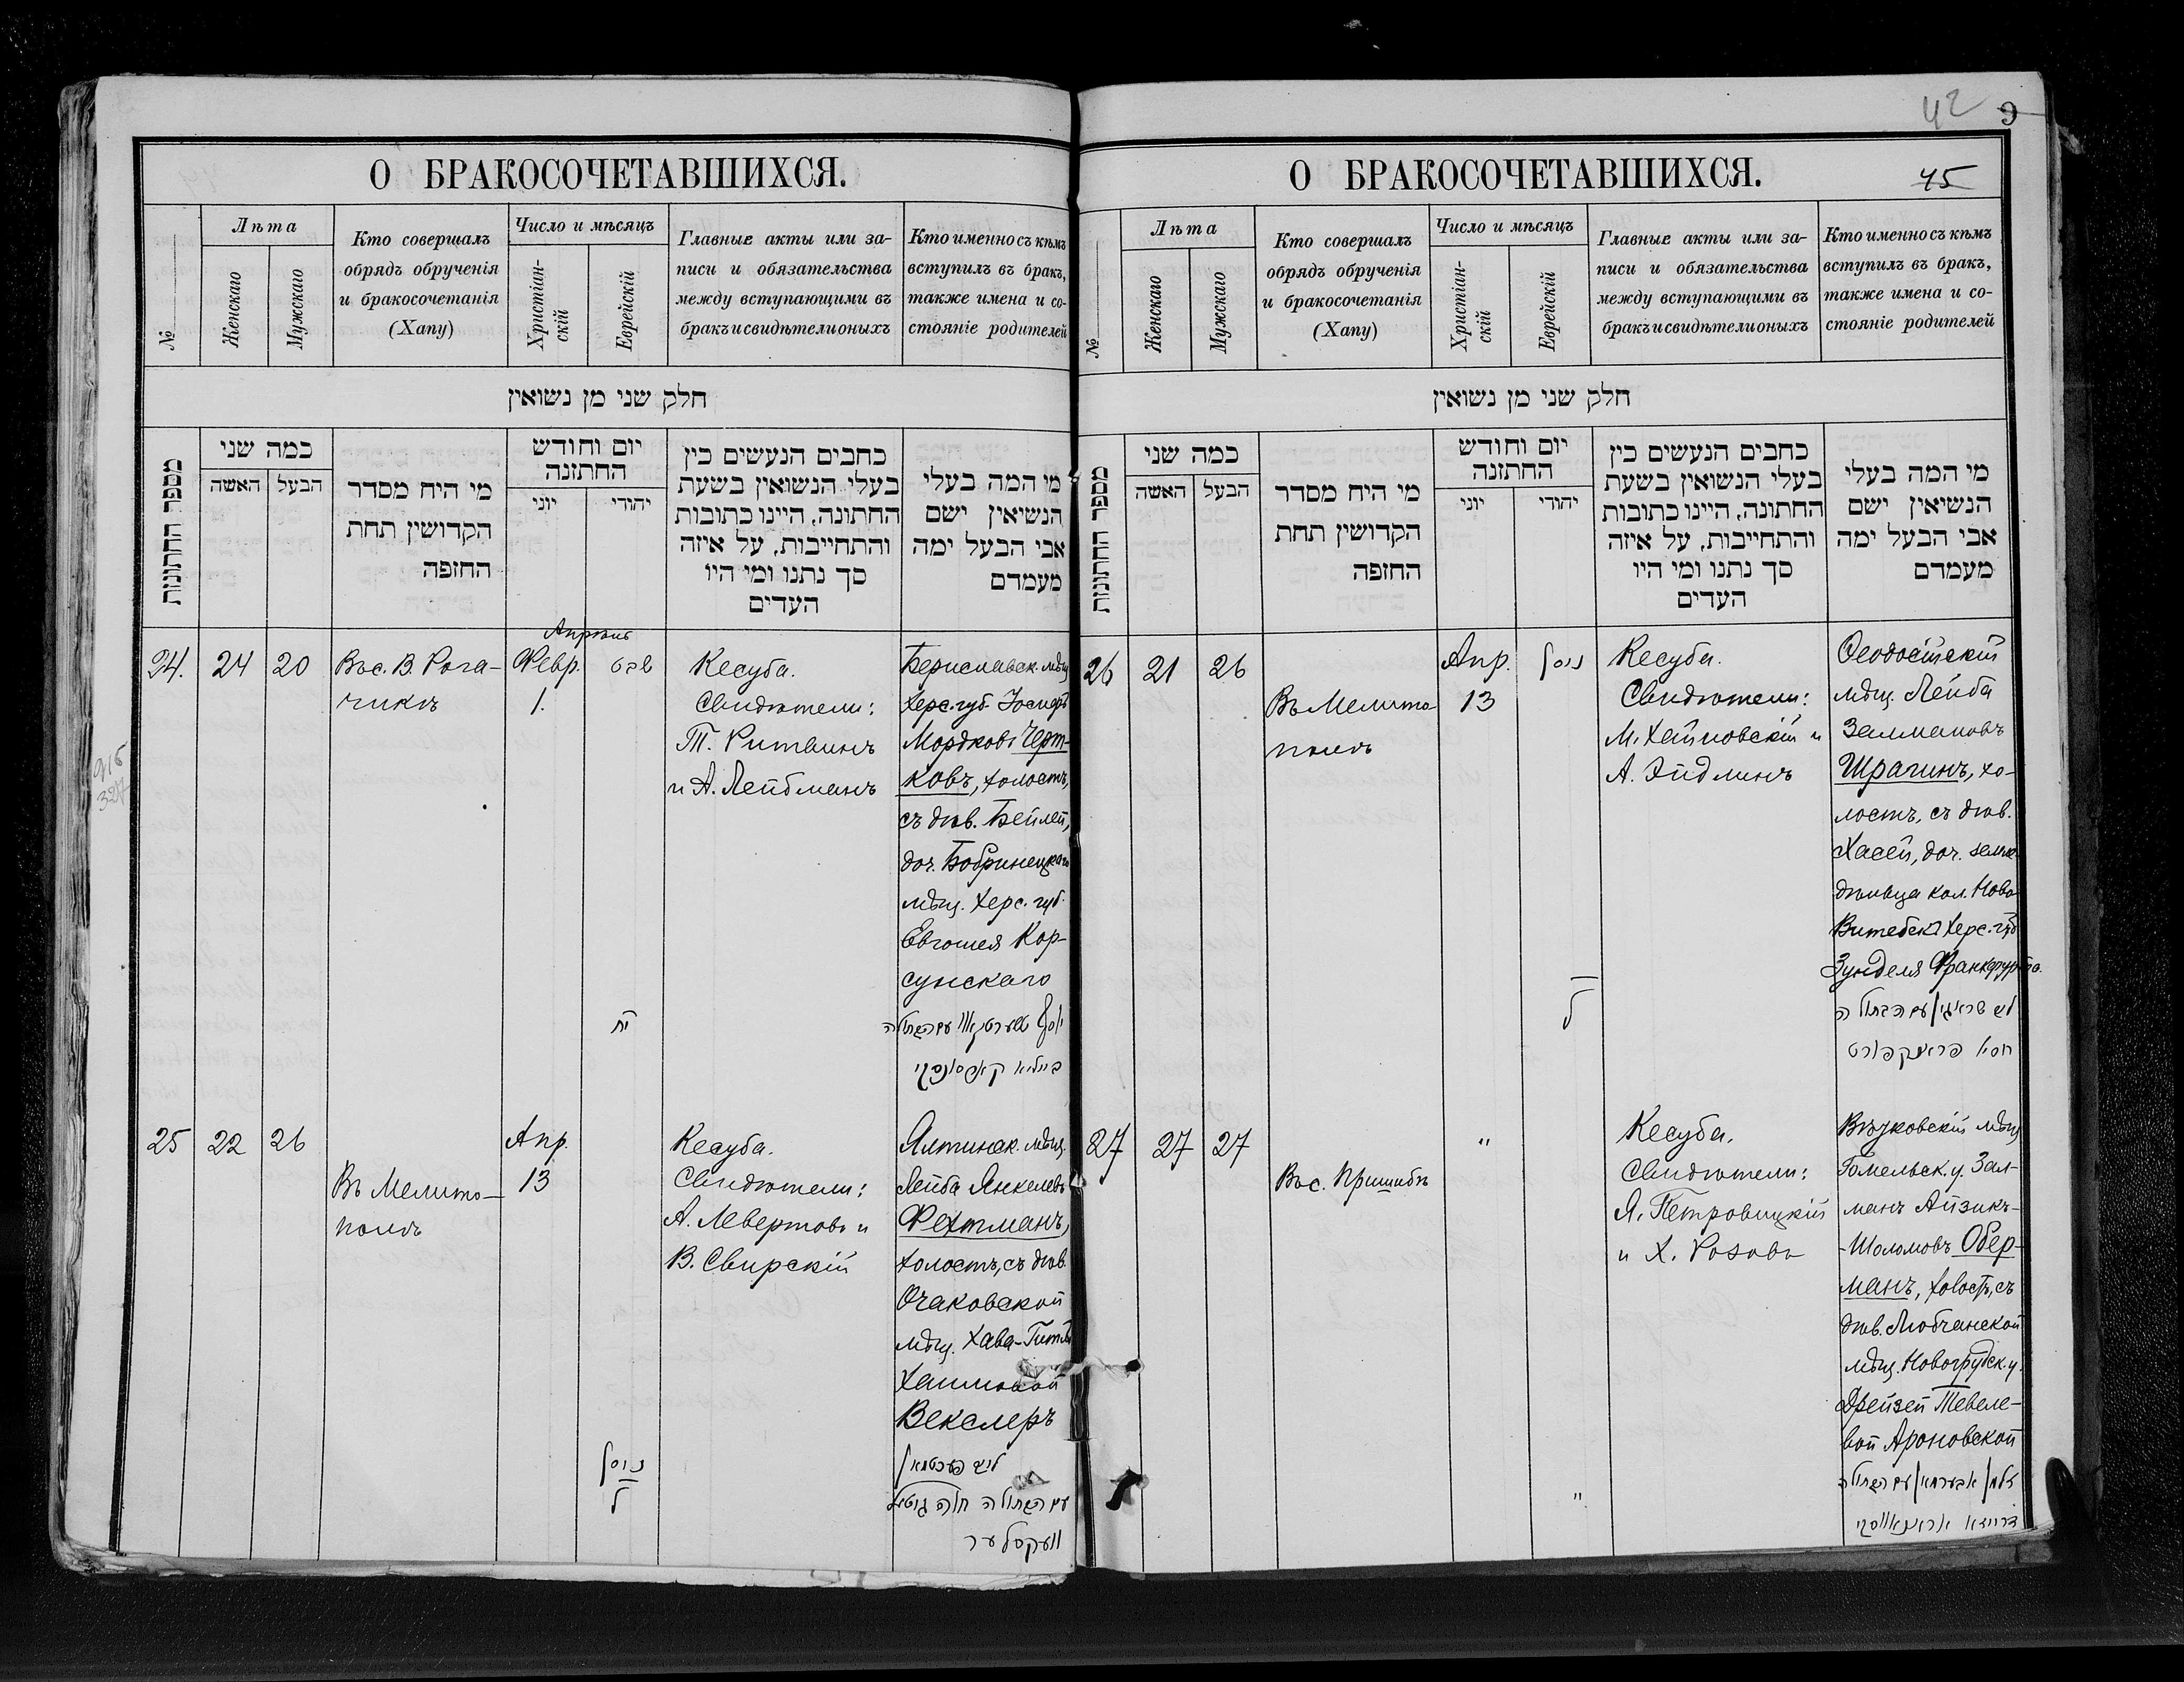 О БРАКОСОЧЕТАВШИХСЯ.
№
Лѣта
Женскаго
Мужскаго
Кто совершалъ
обрядъ обрученія
и бракосочетанія
(Хапу)
Число и мѣсяцъ
Христіан-
скій
Еврейскій
Главные акты или за-
писи и обязательства
между вступающими въ
бракъ и свидѣтели оныхъ
Кто именно съ кѣмъ
вступилъ въ бракъ,
также имена и со-
стояніе родителей
חלק שני מן נשואין
מספר החתונות
כמה שני
האשה
הבעל
מי היח מסדר
הקדושין תחת
החזפה
יום וחודש
החתזנה
יוני
יהודי
כחבים הנעשים כין
בעלי הנשואין בשעת
החתונה, היינו כתובות
והתחייבות, על איזה
סך נתנו ומי היו
העדים
מי המה בעלי
הנשיאין ישם
אבי הבעל ימה
מעמדם
24.
24
20
Въ с. В. Рога-
чикѣ
Апрѣль
Февр.
1.
שבט
יח
Кесуба.
Свидѣтели:
Т. Ритвинъ
и А. Лейбманъ
Бериславск. мѣщ.
Херс. губ. Іосифъ
Мордковъ Черт-
ковъ, холостъ,
съ дѣв. Бейлей,
доч. Бобринецкаго
мѣщ. Херс. губ.
Евгошея Кор-
сунскаго
יוסף טשערטקאוו עם הבתולה
ביילא קארסונסקי
25
22
26
Въ Мелито-
полѣ
Апр.
13
ניסן
ל
Кесуба.
Свидѣтели:
А. Левертовъ и
В. Свирскій
Ялтинск. мѣщ.
Лейба Янкелевъ
Фехтманъ,
холостъ, съ дѣв.
Очаковской
мѣщ. Хава-Гитля
Хаимовой
Векслеръ
ליב פעכטמאן
עם הבתולה חוה גיטל
וועקסלער
42
9
О БРАКОСОЧЕТАВШИХСЯ.
45
№
Лѣта
Женскаго
Мужскаго
Кто совершалъ
обрядъ обрученія
и бракосочетанія
(Хапу)
Число и мѣсяцъ
Христіан-
скій
Еврейскій
Главные акты или за-
писи и обязательства
между вступающими въ
бракъ и свидѣтели оныхъ
Кто именно съ кѣмъ
вступилъ въ бракъ,
также имена и со-
стояніе родителей
חלק שני מן נשואין
מספר החתונות
כמה שני
האשה
הבעל
מי היח מסדר
הקדושין תחת
החזפה
יום וחודש
החתזנה
יוני
יהודי
כחבים הנעשים כין
בעלי הנשואין בשעת
החתונה, היינו כתובות
והתחייבות, על איזה
סך נתנו ומי היו
העדים
מי המה בעלי
הנשיאין ישם
אבי הבעל ימה
מעמדם
26
21
26
Въ Мелито-
полѣ
Апр.
13
ניסן
ל
Кесуба.
Свидѣтели:
М. Хаймовскій и
А. Эйдлинъ
Ѳеодосійскій
мѣщ. Лейба
Залмановъ
Шрагинъ, хо-
лостъ, съ дѣв.
Хасей, доч. земле-
дѣльца кол. Ново-
Витебскъ Херс. губ.
Зунделя Франкфурта.
ליב שראגין עם הבתולה
חסיא פראנקפורט
27
27
27
Въ с. Пришибѣ
"
"
Кесуба.
Свидѣтели:
Я. Петровицкій
и Х. Розовъ
Вѣтковскій мѣщ.
Гомельск. у. Зал-
манъ Айзикъ-
-Шоломовъ Обер-
манъ, холостъ, съ
дѣв. Любчанской
мѣщ. Новогрудск. у.
Дрейзей Тевеле-
вой Ароновской
זלמן אבערמאן עם הבתולה
דרייזא אראנאווסקי